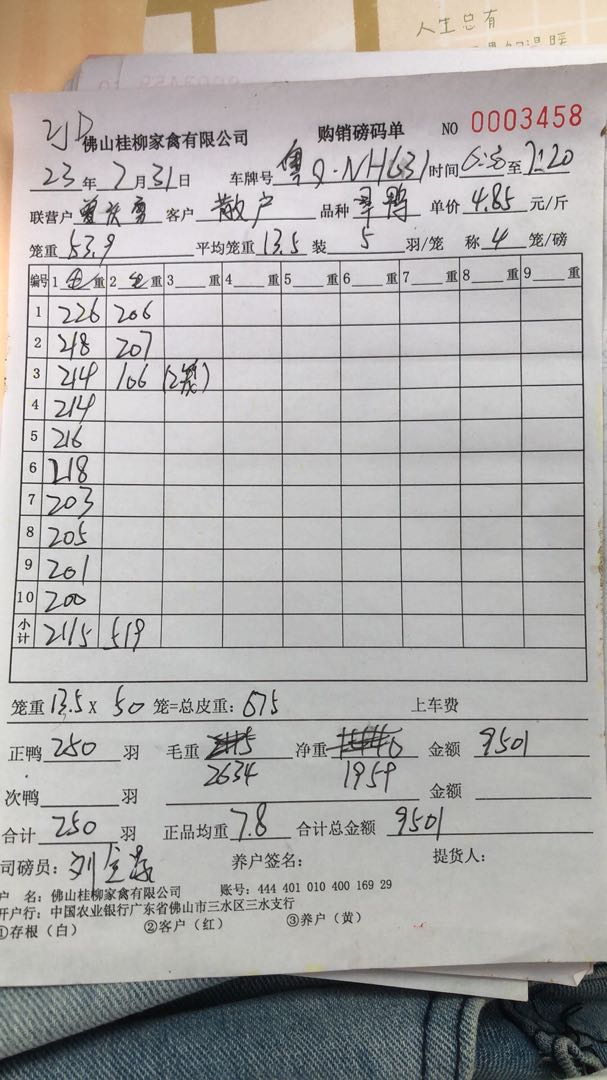 人生总有
0003458
佛山桂柳家禽有限公司 购销磅码单 NO 0003458
23年7月31日 车牌号 粤Q·NH631 时间 6:30至7:20
联营户 客户 散户 品种 单价 4.85 元/斤
笼重 53.9 平均笼重 13.5 装 5 羽/笼 称 4 笼/磅
编号 1 毛 重 2 毛 重 3 重 4 重 5 重 6 重 7 重 8 重 9 重
1 226 206
2 218 207
3 214 106 (2笼)
4 214
5 216
6 218
7 203
8 205
9 201
10 200
小计 2115 519
笼重 13.5 X 50 笼=总皮重: 675 上车费
正鸭 250 羽 毛重 净重 金额 9501
2634 1959
次鸭 羽 金额
合计 250 羽 正品均重 7.8 合计总金额 9501
司磅员: 养户签名: 提货人:
户 名: 佛山桂柳家禽有限公司 账号: 444 401 010 400 169 29
开户行: 中国农业银行广东省佛山市三水区三水支行
①存根（白） ②客户（红） ③养户（黄）